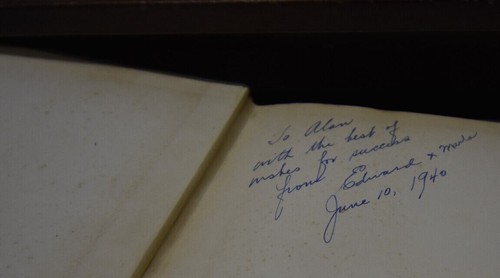 To Alan
with the best of
wishes for success
from Edward &
June 10, 1940